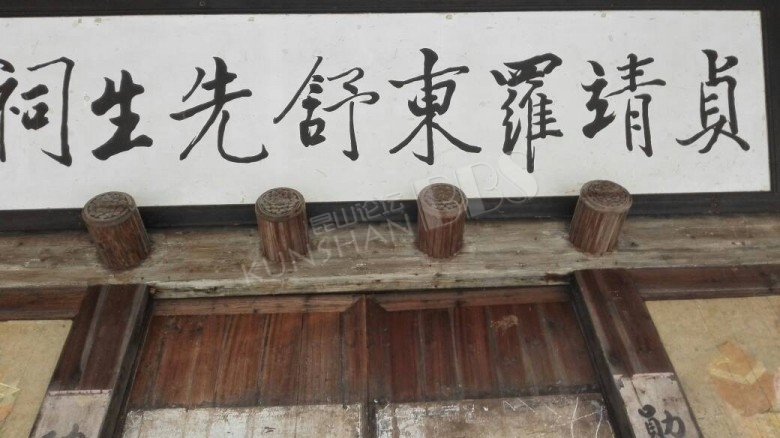 貞靖羅東舒先生祠
昆山论坛
KUNSHAN BBS
勛